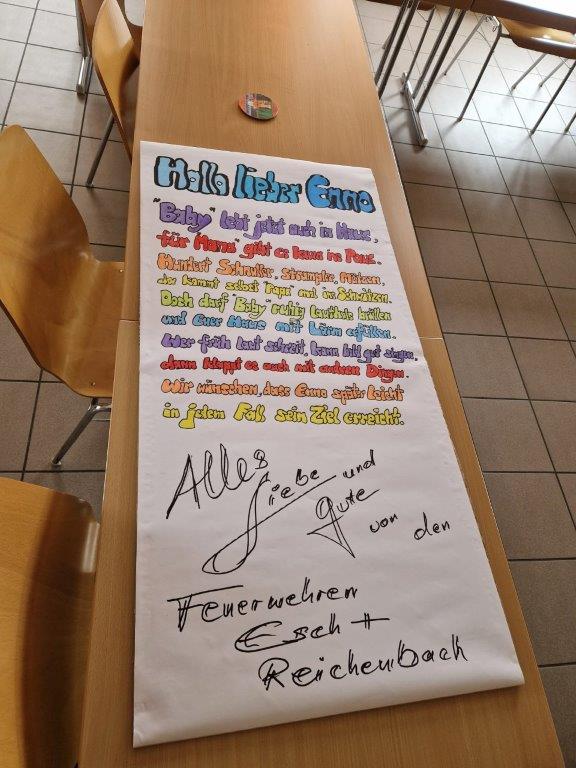 Hallo lieber Enno
"Baby" lebt jetzt auch im Haus,
für "Mama" gibt es kaum ne Paus'.
Hundert Schnuller, Strampler, Mützen,
da kommt selbst "Papa" mal ins Schwitzen.
Doch darf "Baby" ruhig lauthals brüllen
und Euer Haus mit Lärm erfüllen.
Wer früh laut schreit, kann bald gut singen,
dann klappt es auch mit anderen Dingen.
Wir wünschen, dass Enno später leicht
in jedem Fall sein Ziel erreicht.
Alles
Liebe und
gute von den
Feuerwehren
Esch +
Reichenbach